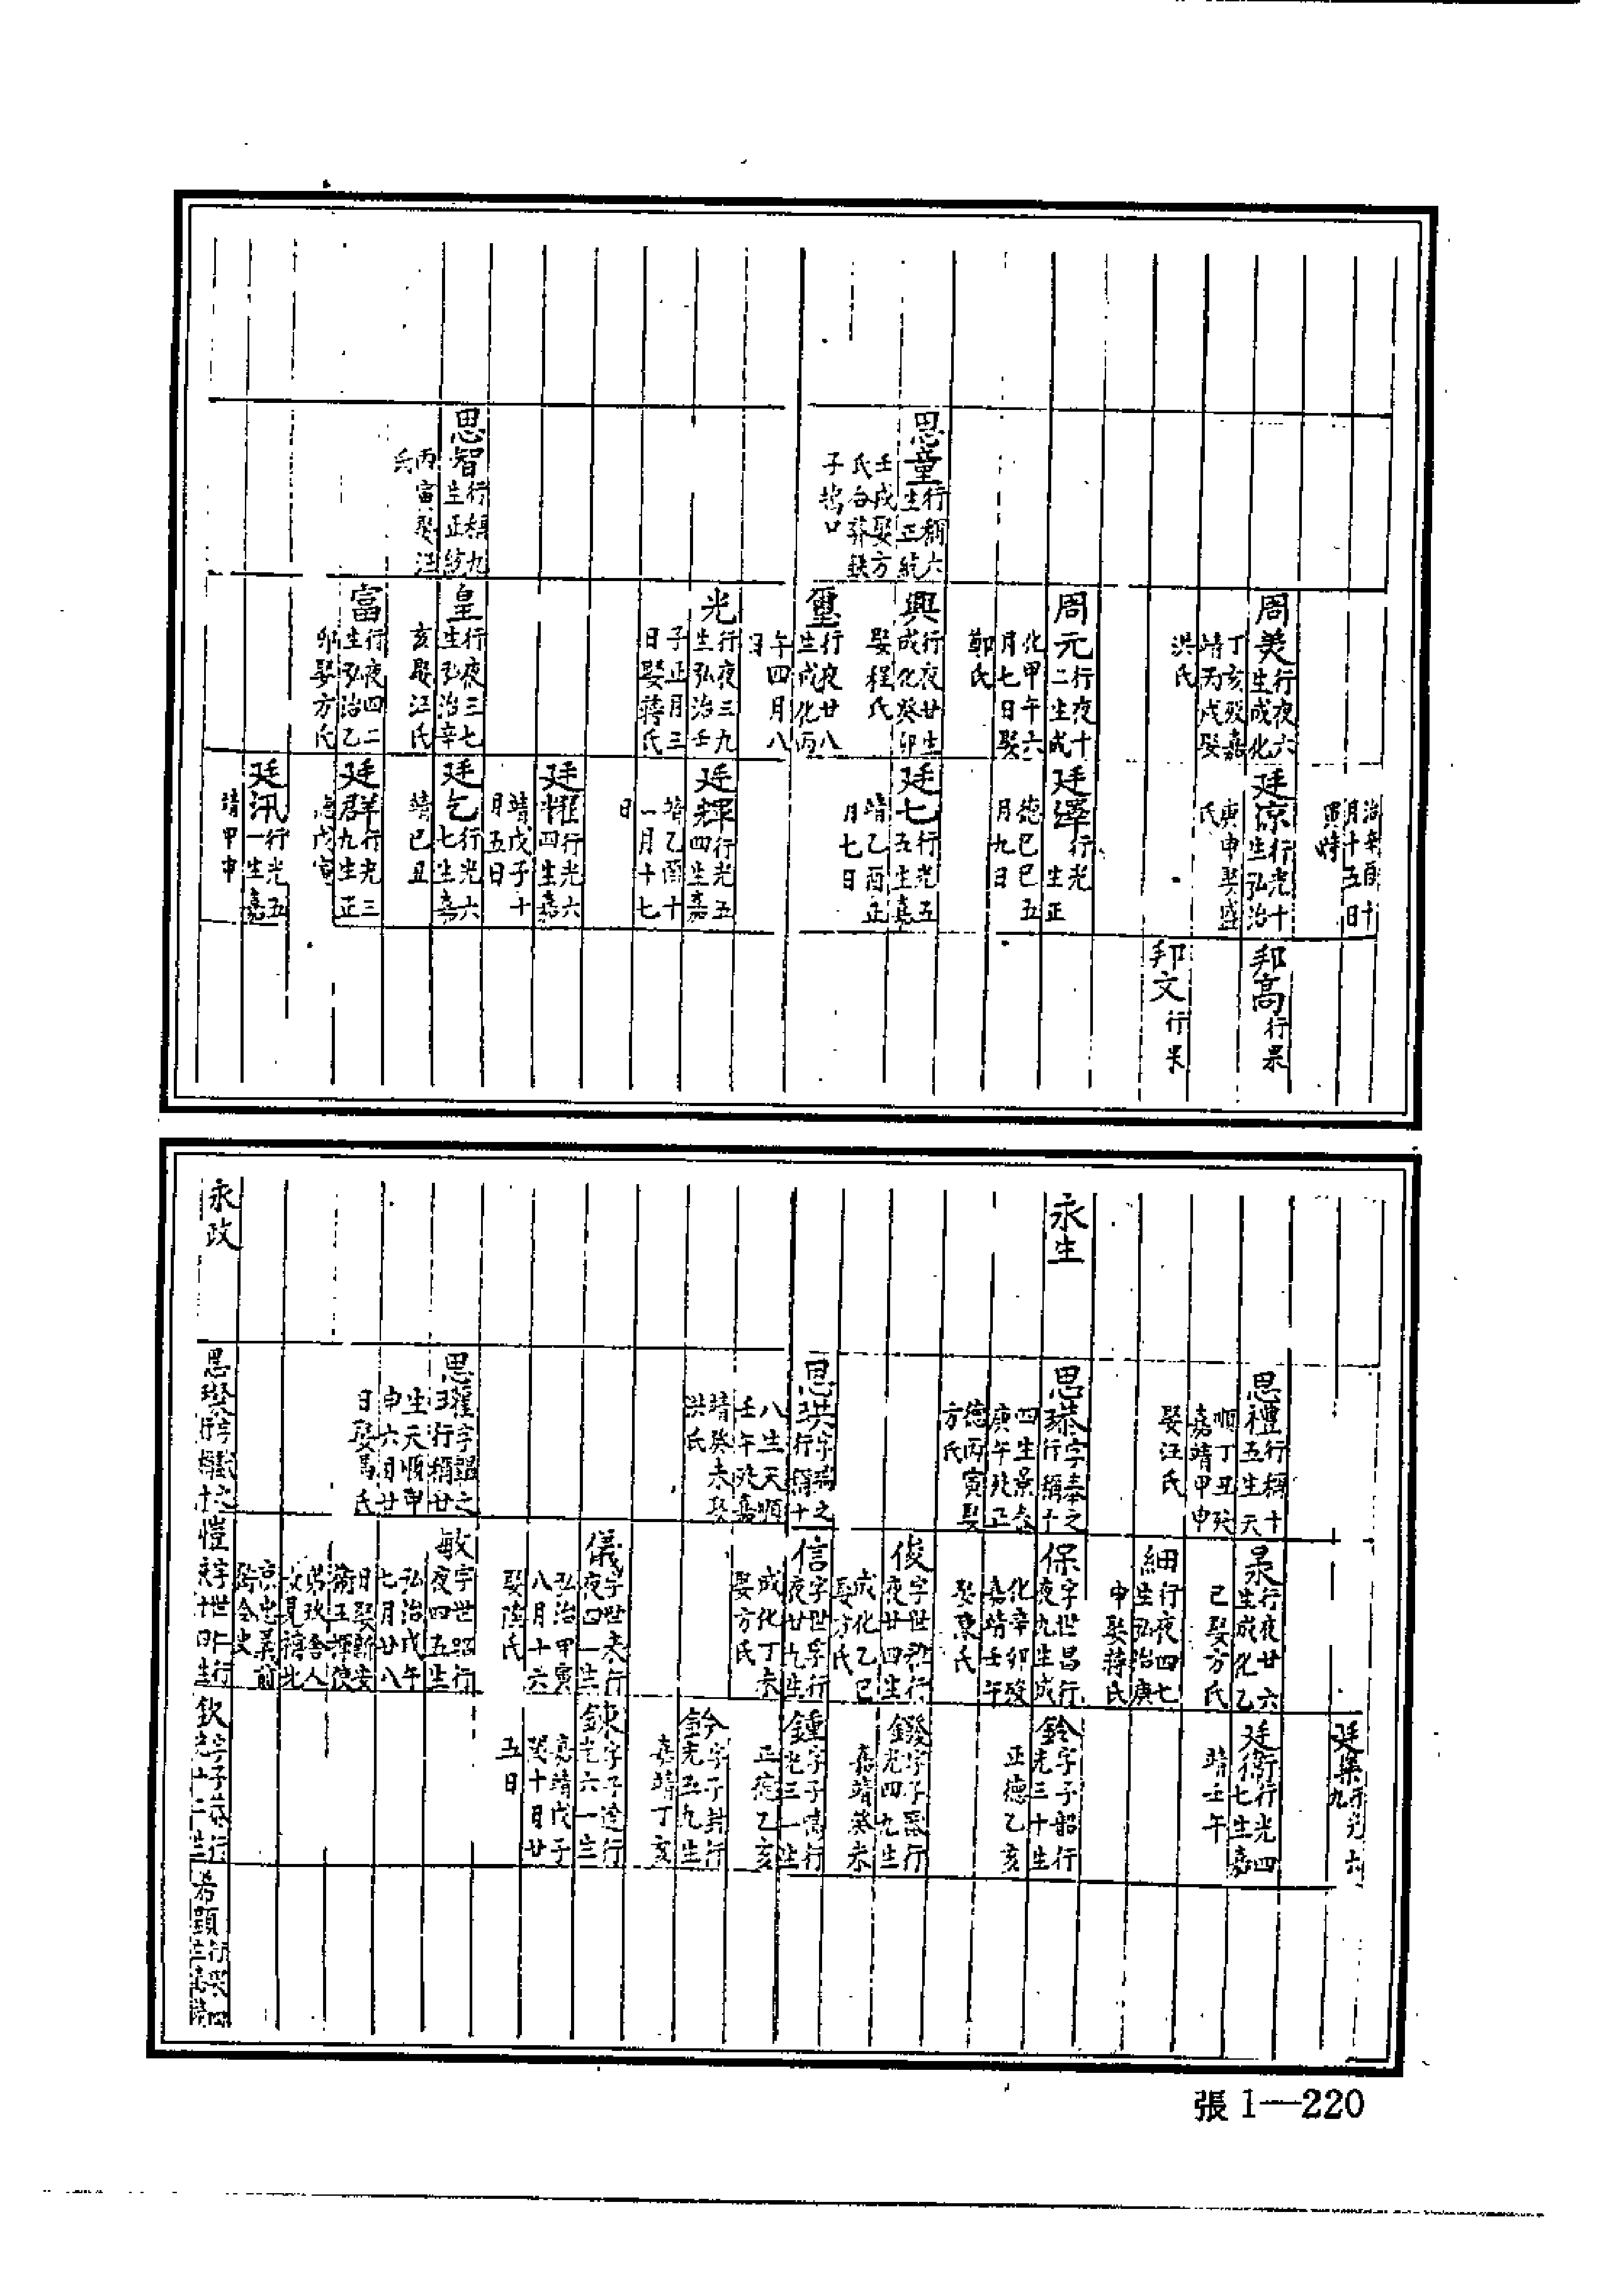 治辛酉十
月十五日
寅時
周美行夜六
生成化
丁亥歿嘉
靖丙戌娶
洪氏
廷凉行光十
生弘治
庚申娶盛
氏
邦高行杲
邦文行杲
周元行夜十
二生成
化甲午六
月七日娶
鄭氏
廷澤行光
生正
德己巳五
月九日
思童行稱六
生正統
壬戌娶方
氏合葬鉄
子塢口
興行夜廿生
成化癸卯
娶程氏
廷七行光五
五生嘉
靖乙酉正
月七日
璽行夜廿八
生成化丙
午四月八
日
光行夜三九
生弘治壬
子正月三
日娶蔣氏
廷輝行光五
四生嘉
靖乙酉十
一月十七
日
廷耀行光六
四生嘉
靖戊子十
月五日
思智行稱九
生正統
丙寅娶汪
氏
皇行夜三七
生弘治辛
亥娶汪氏
廷乞行光六
七生嘉
靖己丑
富行夜四二
生弘治乙
卯娶方氏
廷群行光三
九生正
德戊寅
廷汛行光五
一生嘉
靖甲申
廷業行光六
九
思禮行稱十
五生天
順丁丑歿
嘉靖甲申
娶汪氏
泉行夜廿六
生成化乙
巳娶方氏
廷衛行光四
七生嘉
靖壬午
細行夜四七
生弘治庚
申娶蔣氏
永生
思琫字奉之
行稱十
四生景泰
庚午歿正
德丙寅娶
方氏
保字世昌行
夜九生成
化辛卯歿
嘉靖壬午
娶陳氏
鈴字子韶行
光三十生
正德乙亥
俊字世 行
夜廿四生
成化乙巳
娶方氏
鏺字子 行
光四九生
嘉靖癸未
思珙字 之
行稱十
八生天順
壬午歿嘉
靖癸未娶
洪氏
信字世孚行
夜廿九生
成化丁未
娶方氏
鍾字子 行
光三一生
正德乙亥
鈐字子 行
光五九生
嘉靖丁亥
儀字世來行
夜四一生
弘治甲寅
八月十六
娶陳氏
鍊字子達行
光六一生
嘉靖戊子
閏十月廿
五日
思瓘字 之
行稱廿
生天順甲
申六月廿
日娶馬氏
敏字世昭行
夜四五生
弘治戊午
七月廿八
日娶新安
衛王揮使
弟玫舍人
女見禧北
京忠義前
衛令史
永政
思璨
愷字世仁行
夜十四生
欽字子恭行
光十二生
希顯行杲四
生嘉靖
張1—220